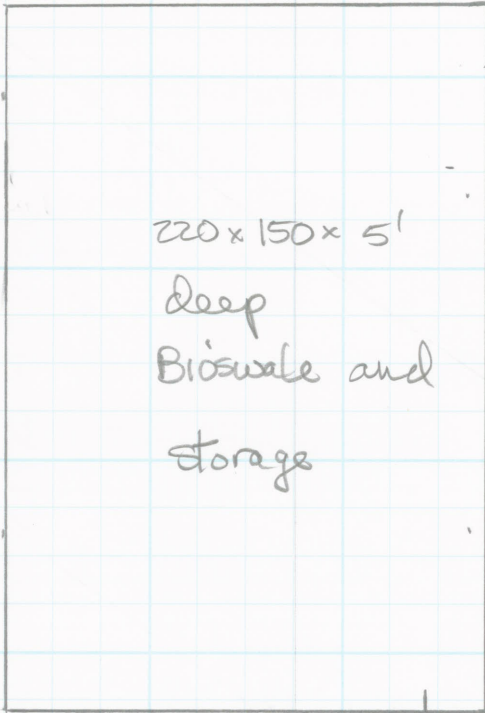 220 x 150 x 5'
deep
Bioswale and
storage